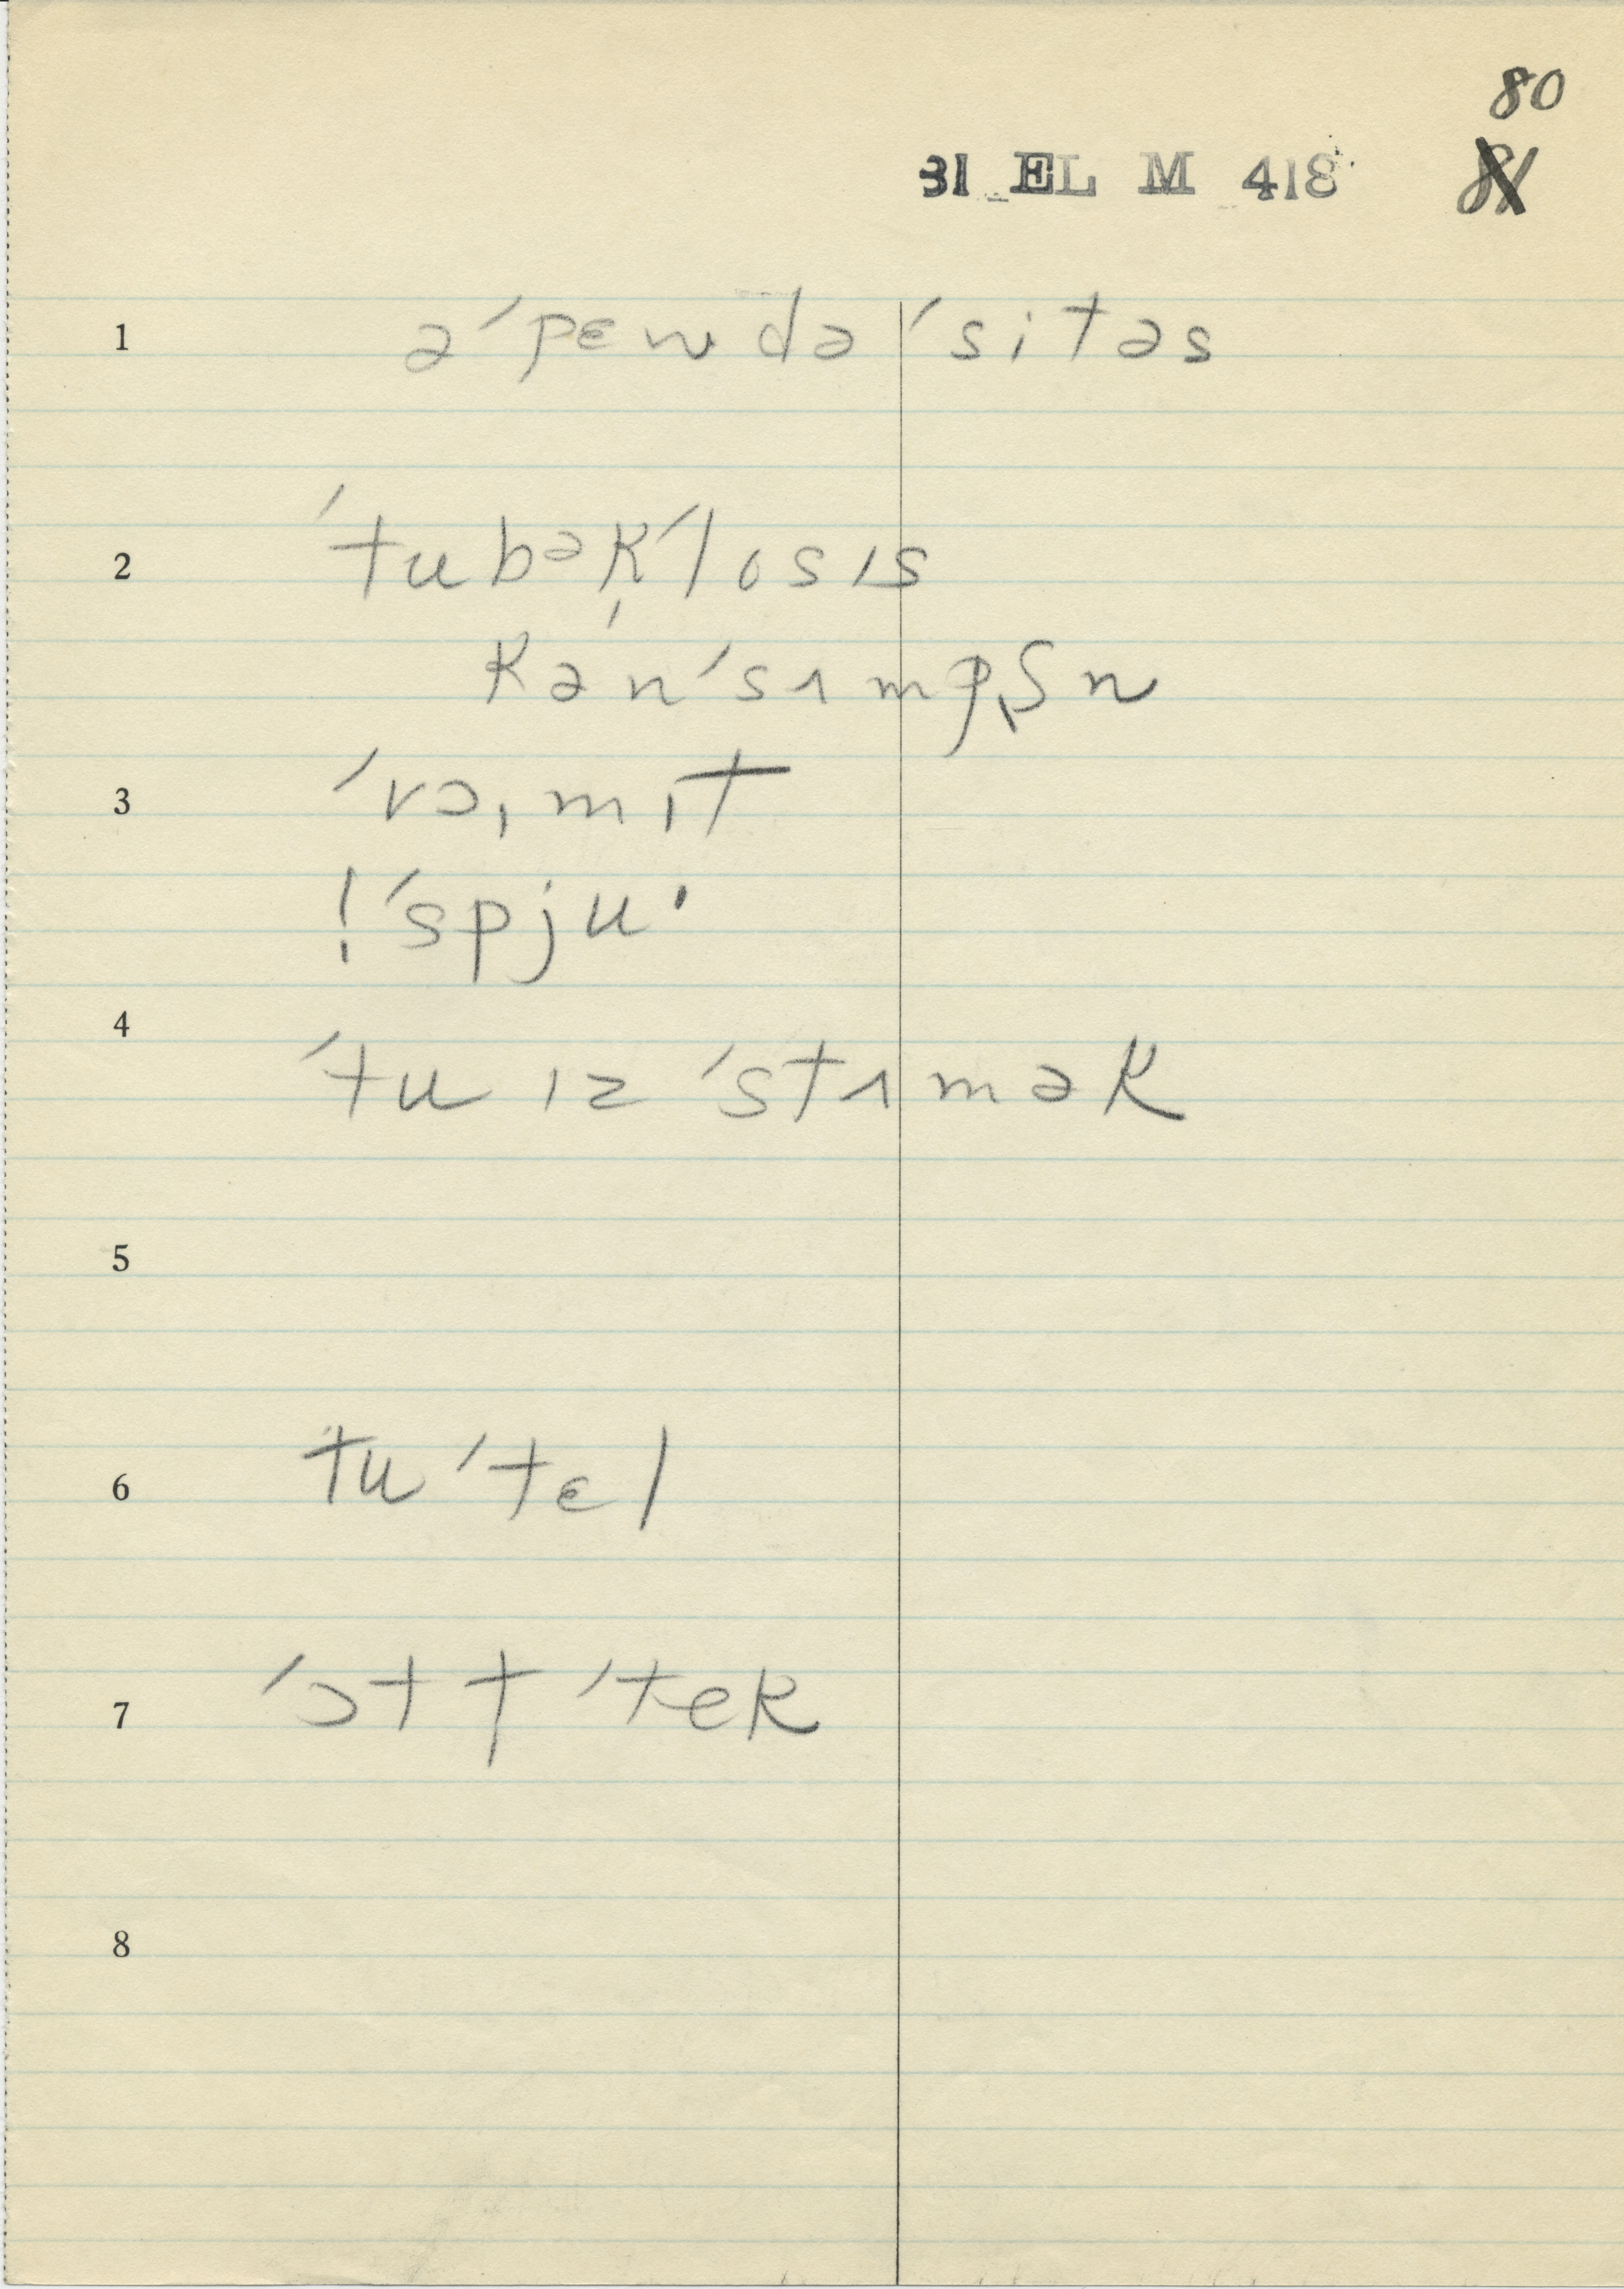 80
31 EL M 418 81
1 ə ˊpɛn də ˊsitəs
2 ˊtubək̦ˊlosɪs
kənˊsɪmpʃn
3 ˊvɔ,mɪt
!ˊspju·
4 ˊtu ɪz ˊstɪmək
5
6 tuˊtɛl
7 ˊɔt t ˊtek
8